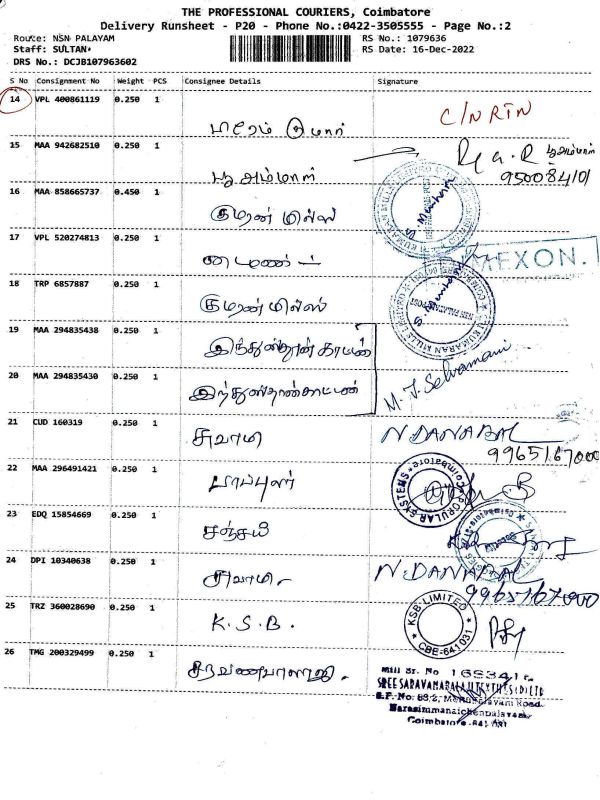 THE PROFESSIONAL COURIERS, Coimbatore
Delivery Runsheet - P20 - Phone No.:0422-3505555 - Page No.:2
Route: NSN PALAYAM
RS No.: 1079636
Staff: SULTAN*
RS Date: 16-Dec-2022
DRS No.: DCJB107963602
S No Consignment No Weight PCS Consignee Details Signature
14 VPL 400861119 0.250 1
C/N RTN
பிரேம் குமார்
15 MAA 942682510 0.250 1
பூ அம்மாள்
பூ அம்மாள்
16 MAA 858665737 0.450 1
குமரன் மில்ஸ்
17 VPL 520274813 0.250 1
MEXON.
18 TRP 6857887 0.250 1
குமரன் மில்ஸ்
19 MAA 294835438 0.250 1
இந்துஸ்தான் காட்டன்
20 MAA 294835430 0.250 1
இந்துஸ்தான் காட்டன்
M. J. Selvamani
21 CUD 160319 0.250 1
சுவாமி
N DANABAL
9965167000
22 MAA 296491421 0.250 1
பாப்புலர்
POPULAR SYSTEMS * Coimbatore *
23 EDQ 15854669 0.250 1
சஞ்சய்
24 DPI 10340638 0.250 1
சுவாமி
N DANABAL
9965167000
25 TRZ 360028690 0.250 1
K. S. B.
KSB LIMITED
* CBE-641 031 *
26 TMG 200329499 0.250 1
சரவணபாலாஜி.
Mill Sr. No
Coimbatore